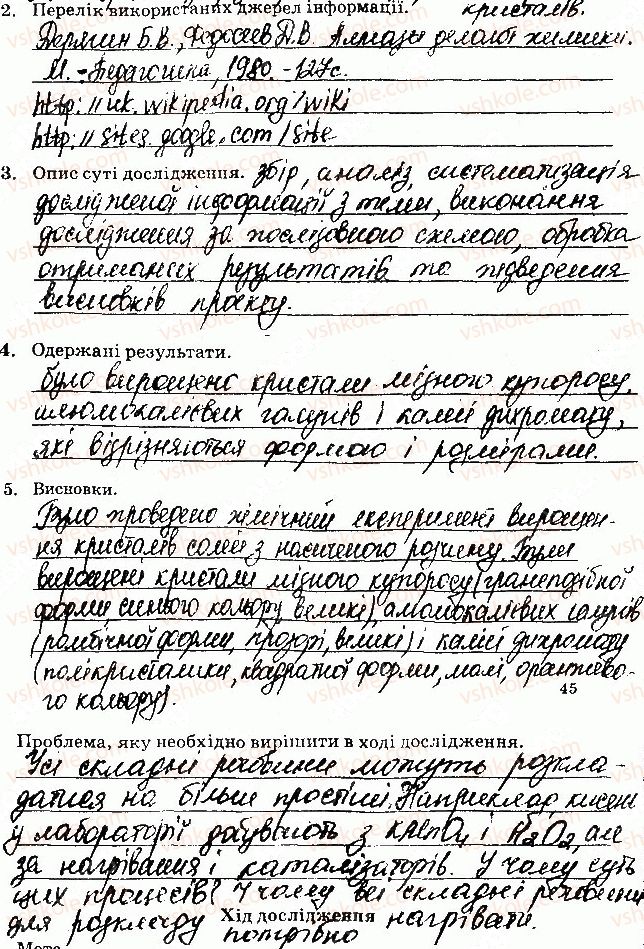 2. Перелік використаних джерел інформації. кристалів.
Дерягин Б.В., Федосеев Д.В. Алмазы делают химики.
М. - Педагогика, 1980. - 127с.
http://uk.wikipedia.org/wiki
http://sites.google.com/site
3. Опис суті дослідження. Збір, аналіз, систематизація
дослідженої інформації з теми, виконання
дослідження за послідовною схемою, обробка
отриманих результатів та підведення
висновків проекту.
4. Одержані результати.
Було вирощено кристали мідного купоросу,
алюмокалієвих галунів і калій дихромату,
які відрізняються формою і розмірами.
5. Висновки.
Було проведено хімічний експеримент вирощен-
ня кристалів солей з насиченого розчину. Були
вирощені кристали мідного купоросу (гранеподібної
форми синього кольору, великі), алюмокалієвих галунів
(ромбічної форми, прозорі, великі) і калій дихромату
(полікристалики, квадратної форми, малі, оранжево-
го кольору).
45
Проблема, яку необхідно вирішити в ході дослідження.
Усі складні речовини можуть розкла-
датися на більш простіші. Наприклад, кисень
у лабораторії добувають з KMnO4 і H2O2, але
за нагрівання і каталізаторів. У чому суть
цих процесів? Чому всі складні речовини
для розкладу потрібно нагрівати.
Хід дослідження
Мета